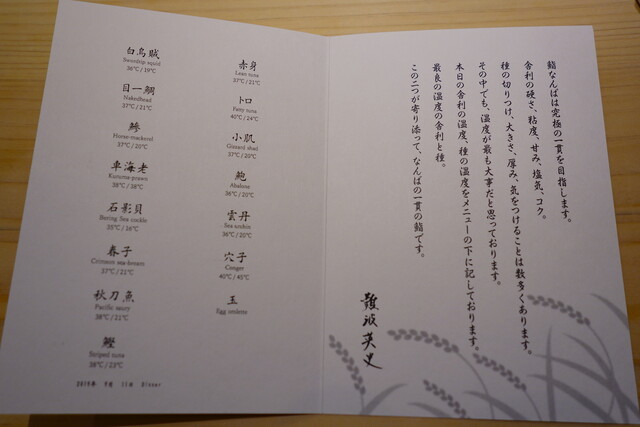 白烏賊
Swordtip squid
36℃ / 19℃
目一鯛
Nakedhead
37℃ / 21℃
鯵
Horse-mackerel
37℃ / 20℃
車海老
Kuruma prawn
38℃ / 38℃
石影貝
Bering Sea cockle
35℃ / 16℃
春子
Crimson sea-bream
37℃ / 21℃
秋刀魚
Pacific saury
38℃ / 21℃
鰹
Striped tuna
38℃ / 23℃
赤身
Lean tuna
37℃ / 21℃
トロ
Fatty tuna
40℃ / 24℃
小肌
Gizzard shad
37℃ / 20℃
鮑
Abalone
36℃ / 20℃
雲丹
Sea urchin
36℃ / 20℃
穴子
Conger
40℃ / 45℃
玉
Egg omlette
2019年 9月 11日 Dinner
鮨なんばは究極の一貫を目指します。
舎利の硬さ、粘度、甘み、塩気、コク。
種の切りつけ、大きさ、厚み、気をつけることは数多くあります。
その中でも、温度が最も大事だと思っております。
本日の舎利の温度、種の温度をメニューの下に記しております。
最良の温度の舎利と種。
この二つが寄り添って、なんばの一貫の鮨です。
難波英史